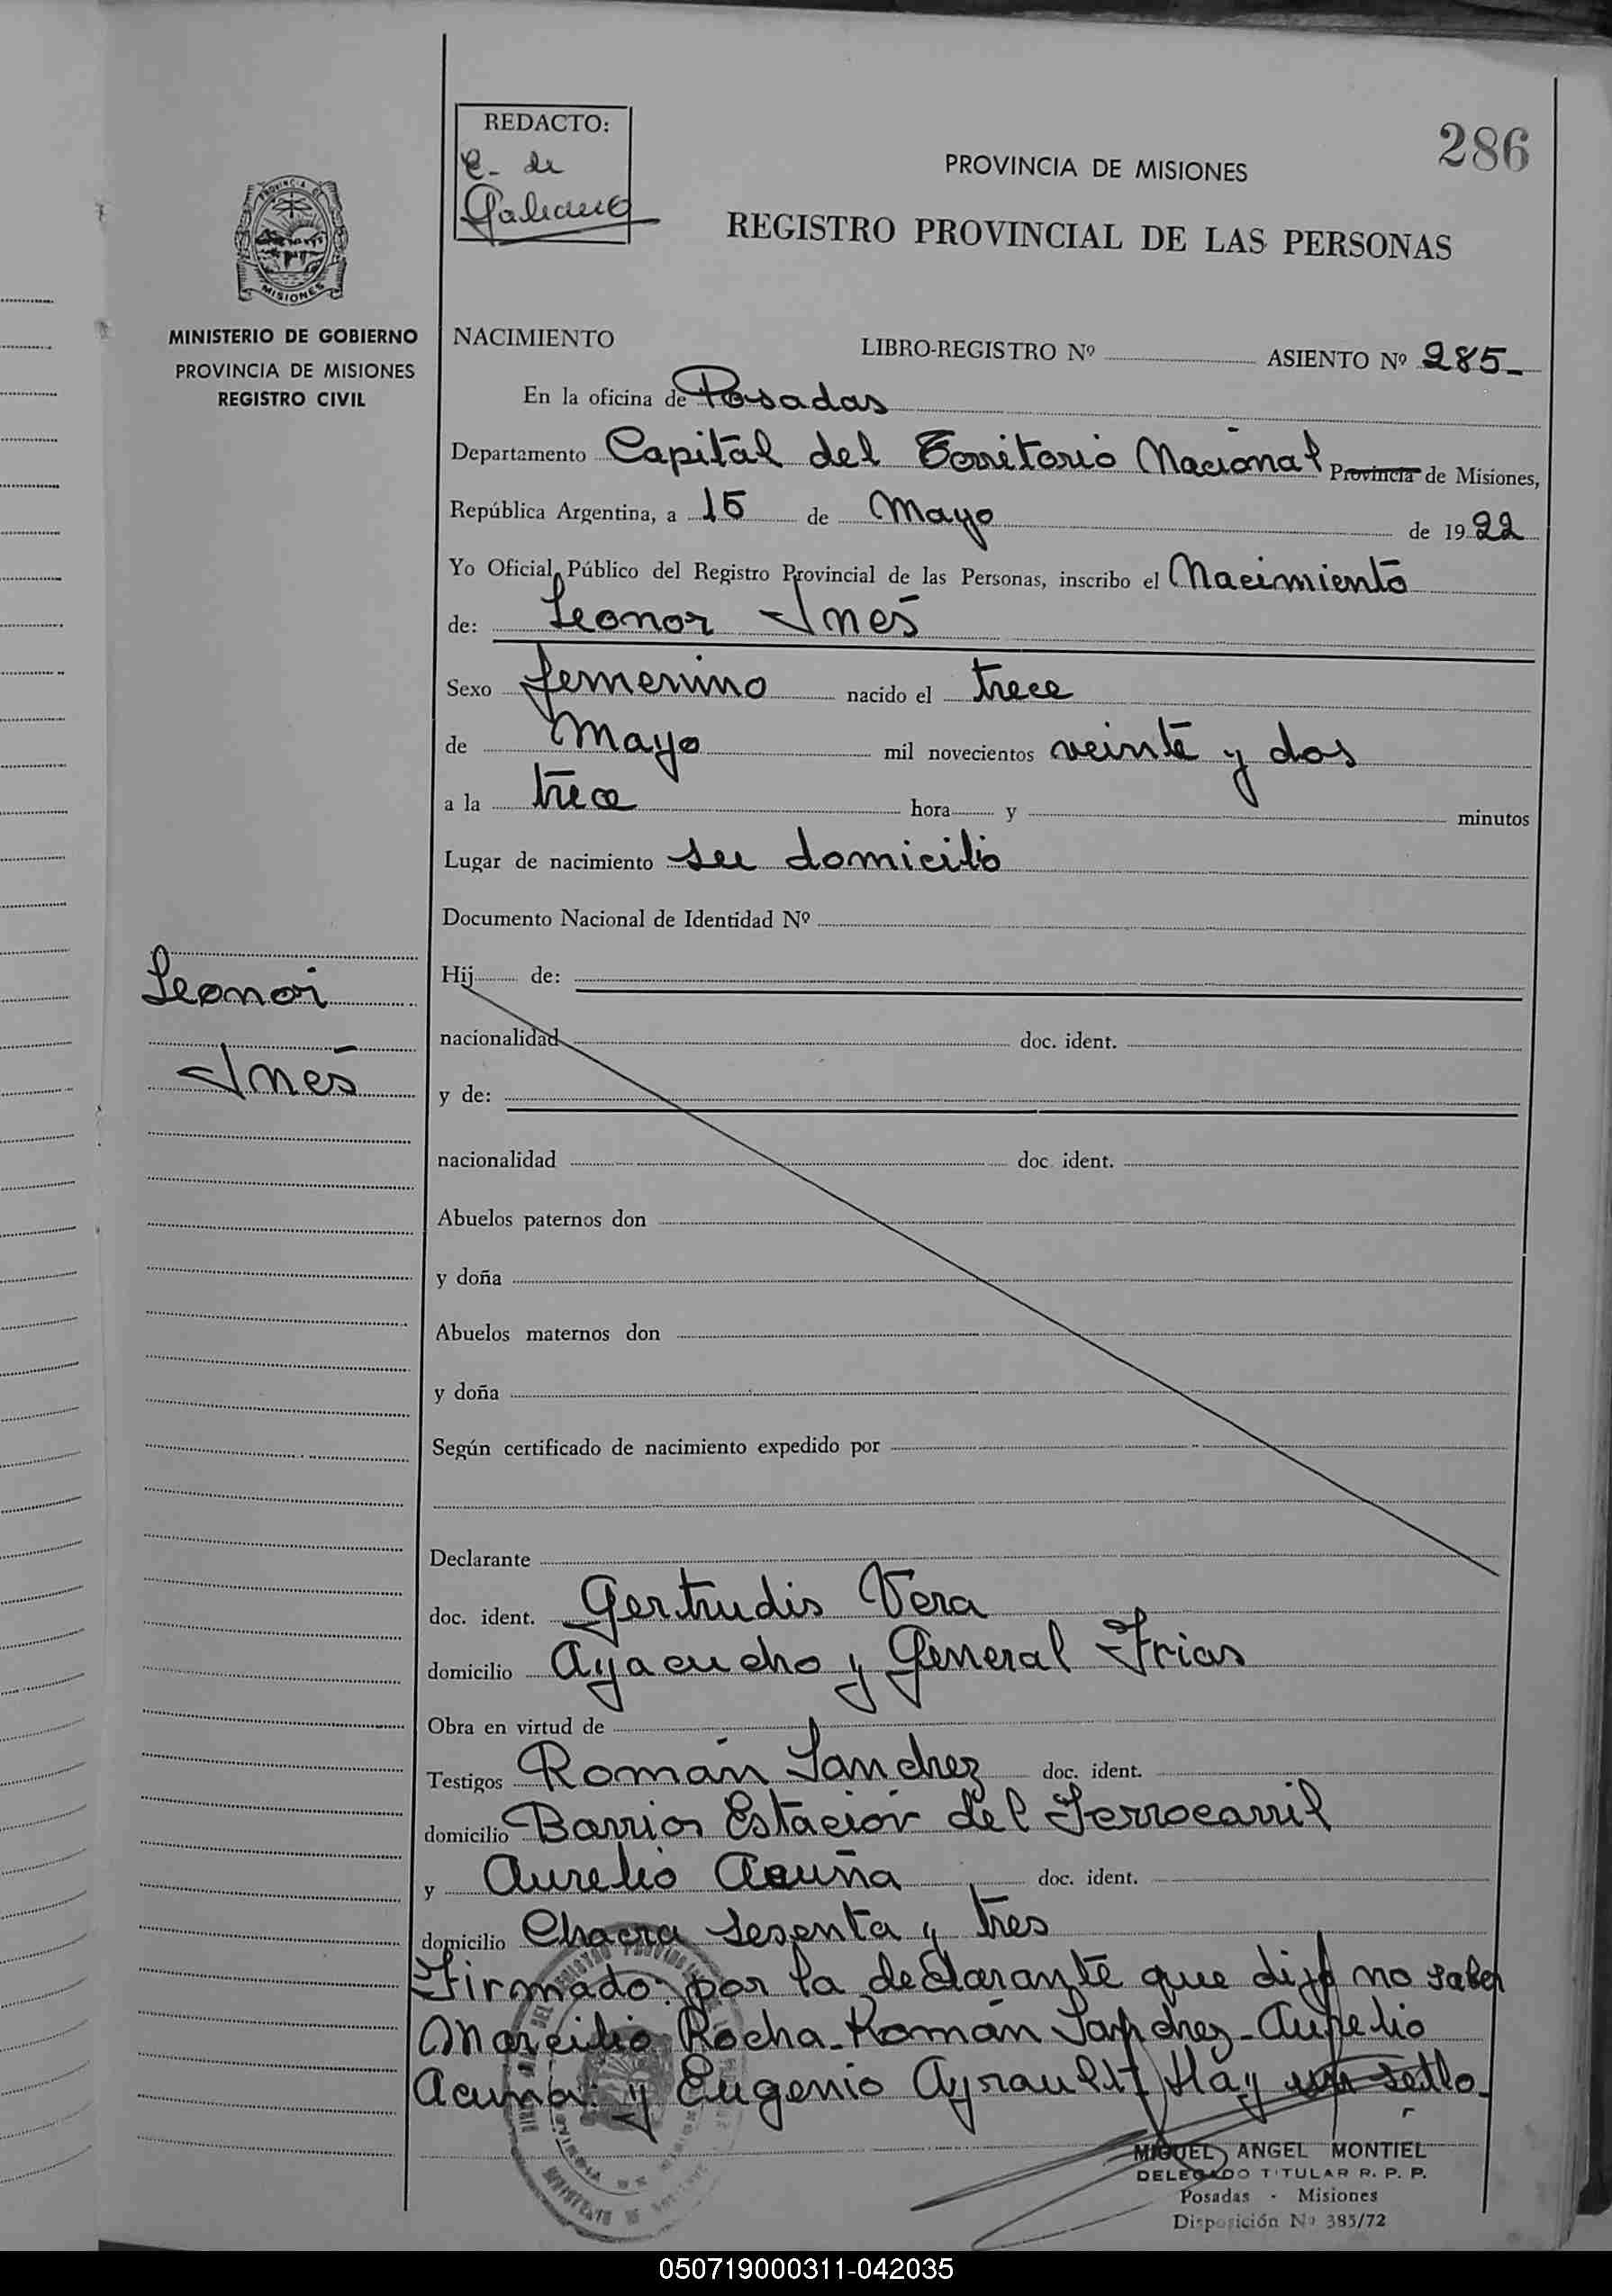 286
REDACTO:
C. de
Galeano
PROVINCIA DE MISIONES
REGISTRO PROVINCIAL DE LAS PERSONAS
PROVINCIA DE
MISIONES
MINISTERIO DE GOBIERNO
PROVINCIA DE MISIONES
REGISTRO CIVIL
NACIMIENTO LIBRO-REGISTRO Nº ASIENTO Nº 285-
En la oficina de Posadas
Departamento Capital del Territorio Nacional Provincia de Misiones,
República Argentina, a 15 de Mayo de 1922
Yo Oficial Público del Registro Provincial de las Personas, inscribo el Nacimiento
de: Leonor Inés
Sexo femenino nacido el trece
de Mayo mil novecientos veinte y dos
a la trece hora y minutos
Lugar de nacimiento su domicilio
Documento Nacional de Identidad Nº
Leonor
Inés
Hij de:
nacionalidad doc. ident.
y de:
nacionalidad doc. ident.
Abuelos paternos don
y doña
Abuelos maternos don
y doña
Según certificado de nacimiento expedido por
Declarante
doc. ident. Gertrudis Vera
domicilio Ayacucho y General Frias
Obra en virtud de
Testigos Román Sanchez doc. ident.
domicilio Barrios Estación del Ferrocarril
y Aurelio Acuña doc. ident.
domicilio Chacra sesenta y tres
Firmado: por la declarante que dijo no saber
Marcilio Rocha - Román Sanchez - Aurelio
Acuña: y Eugenio Ayrault - Hay un sello -
MIGUEL ANGEL MONTIEL
DELEGADO TITULAR R. P. P.
Posadas - Misiones
Disposición Nº 385/72
050719000311-042035